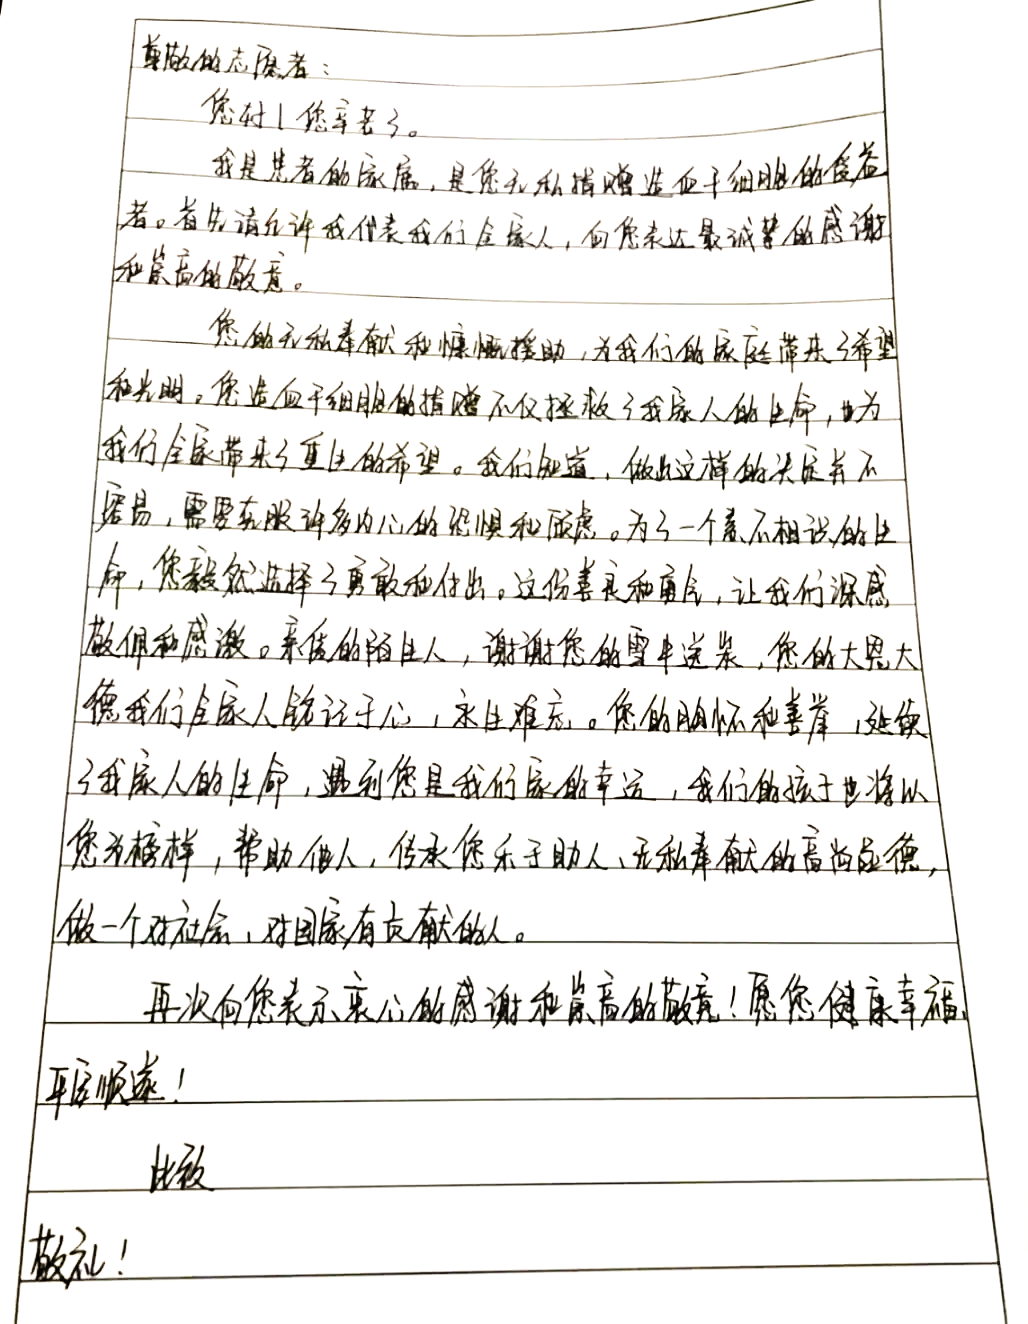 尊敬的志愿者：
您好！您辛苦了。
我是患者的家属，是您无私捐赠造血干细胞的受益
者。首先请允许我代表我们全家人，向您表达最诚挚的感谢
和崇高的敬意。
您的无私奉献和慷慨援助，为我们的家庭带来了希望
和光明。您造血干细胞的捐赠不仅拯救了我家人的生命，也为
我们全家带来了重生的希望。我们知道，做出这样的决定并不
容易，需要克服许多内心的恐惧和顾虑。为了一个素不相识的生
命，您毅然选择了勇敢和付出。这份善良和勇气，让我们深感
敬佩和感激。亲爱的陌生人，谢谢您的雪中送炭，您的大恩大
德我们全家人铭记于心，永生难忘。您的胸怀和善举，延续
了我家人的生命，遇到您是我们家的幸运，我们的孩子也将以
您为榜样，帮助他人，传承您乐于助人、无私奉献的高尚品德，
做一个对社会，对国家有贡献的人。
再次向您表示衷心的感谢和崇高的敬意！愿您健康幸福、
平安顺遂！
此致
敬礼！